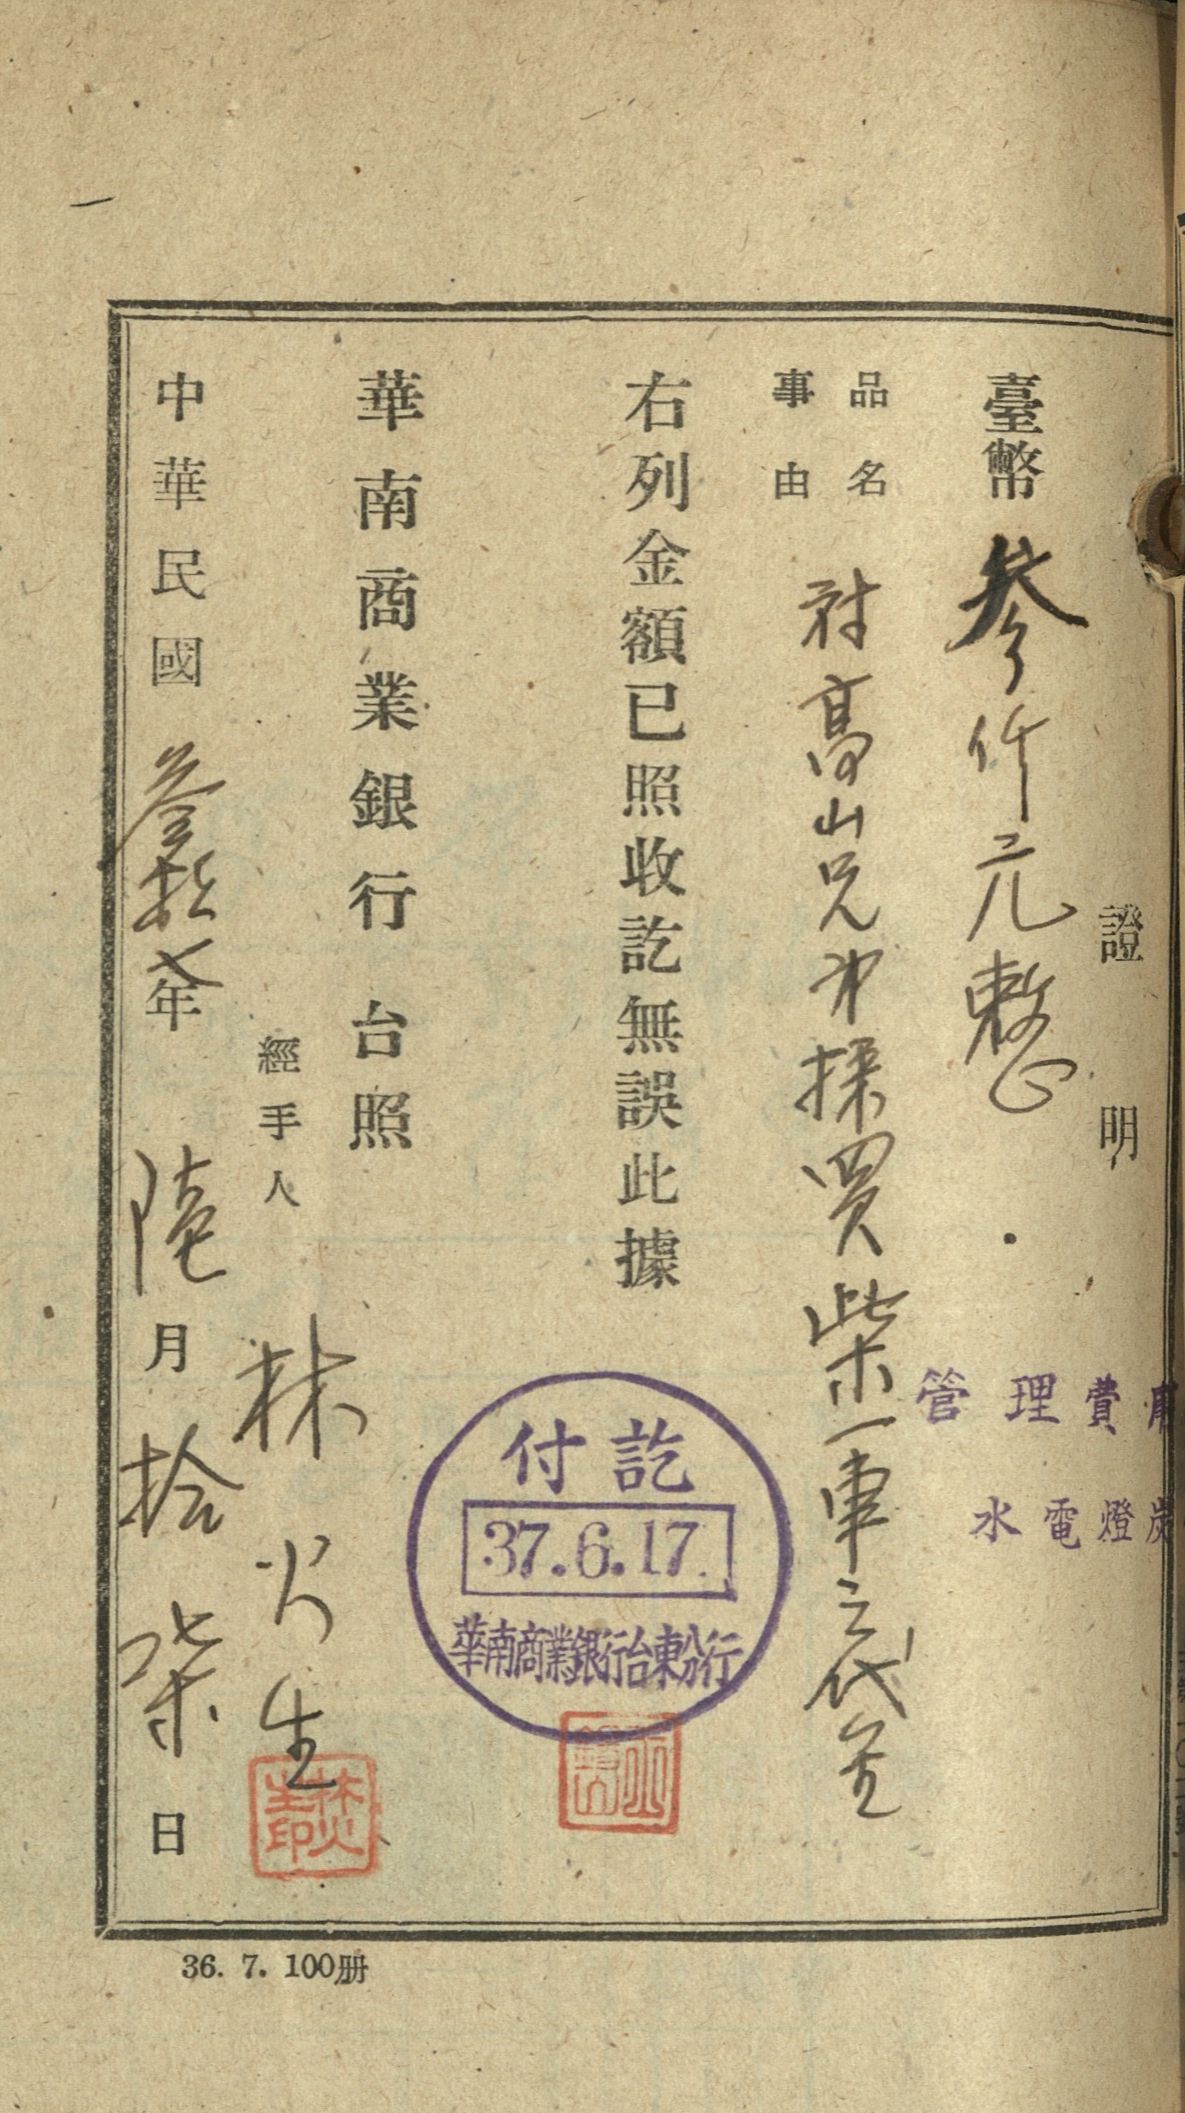 證明
臺幣 參仟元整
管理費用
水電燈炭
品名
事由
討高山兄弟採買柴一車之代金
右列金額已照收訖無誤此據
付訖
37.6.17
華南商業銀行台東分行
華南商業銀行 台照
經手人 林火生
林火生印
中華民國 叁拾七年 陸月 拾柒日
36. 7. 100册